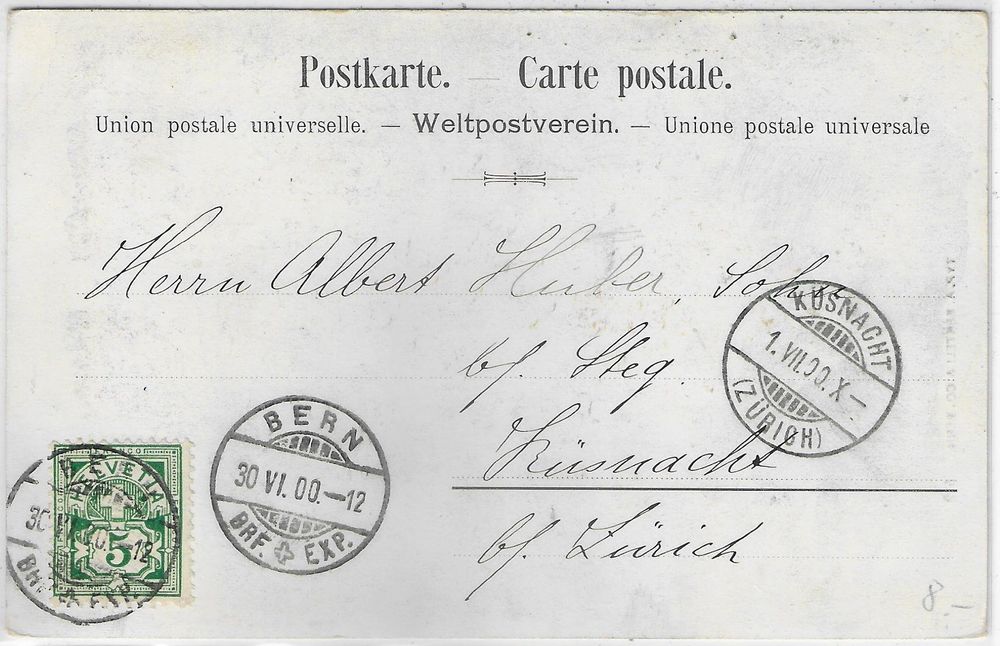 Postkarte. — Carte postale.
Union postale universelle. — Weltpostverein. — Unione postale universale
Herrn Albert Huber, Sohn
b/. Steg.
Küsnacht
b/. Zürich
KÜSNACHT
1.VII.00.X—
(ZÜRICH)
BERN
30 VI.00.—12
BRF. EXP.
HELVETIA
5
8.–